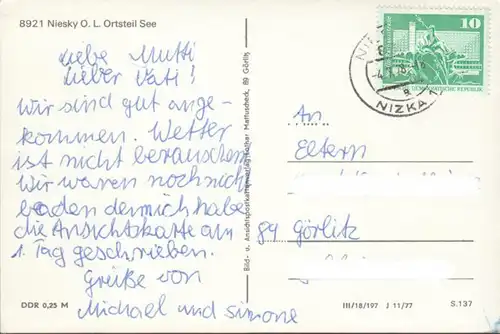 8921 Niesky O. L. Ortsteil See
Liebe Mutti
Lieber Vati!
Wir sind gut ange-
kommen. Wetter
ist nicht berauschend
Wir waren noch nicht
baden denn ich habe
die Ansichtskarte am
1. Tag geschrieben.
Grüße von
Michael und Simone
DDR 0,25 M
Bild- u. Ansichtskartenverlag Lothar Mattuscheck, 89 Görlitz
10
DEUTSCHE DEMOKRATISCHE REPUBLIK
NIZKA
An
Eltern
89 Görlitz
III/18/197 J 11/77
S.137